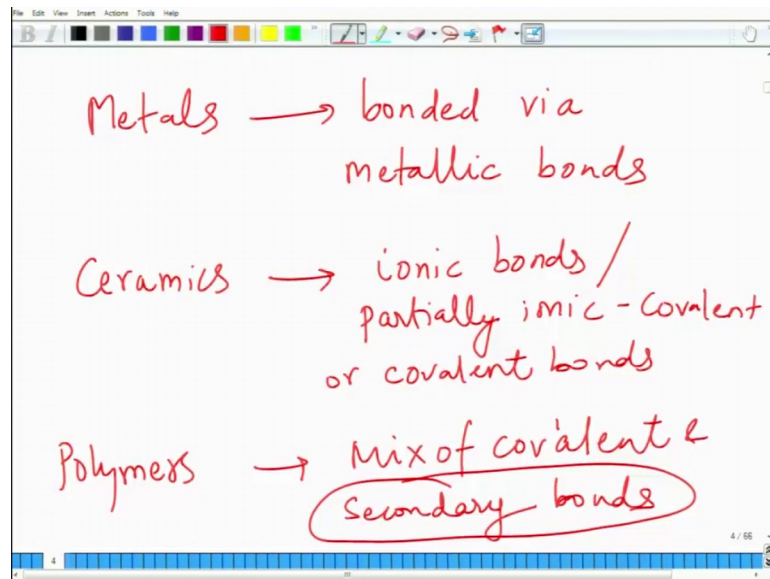 File Edit View Insert Actions Tools Help
B I
Metals → bonded via
metallic bonds
Ceramics → ionic bonds /
partially ionic - covalent
or covalent bonds
Polymers → Mix of covalent &
secondary bonds
4 / 66
4